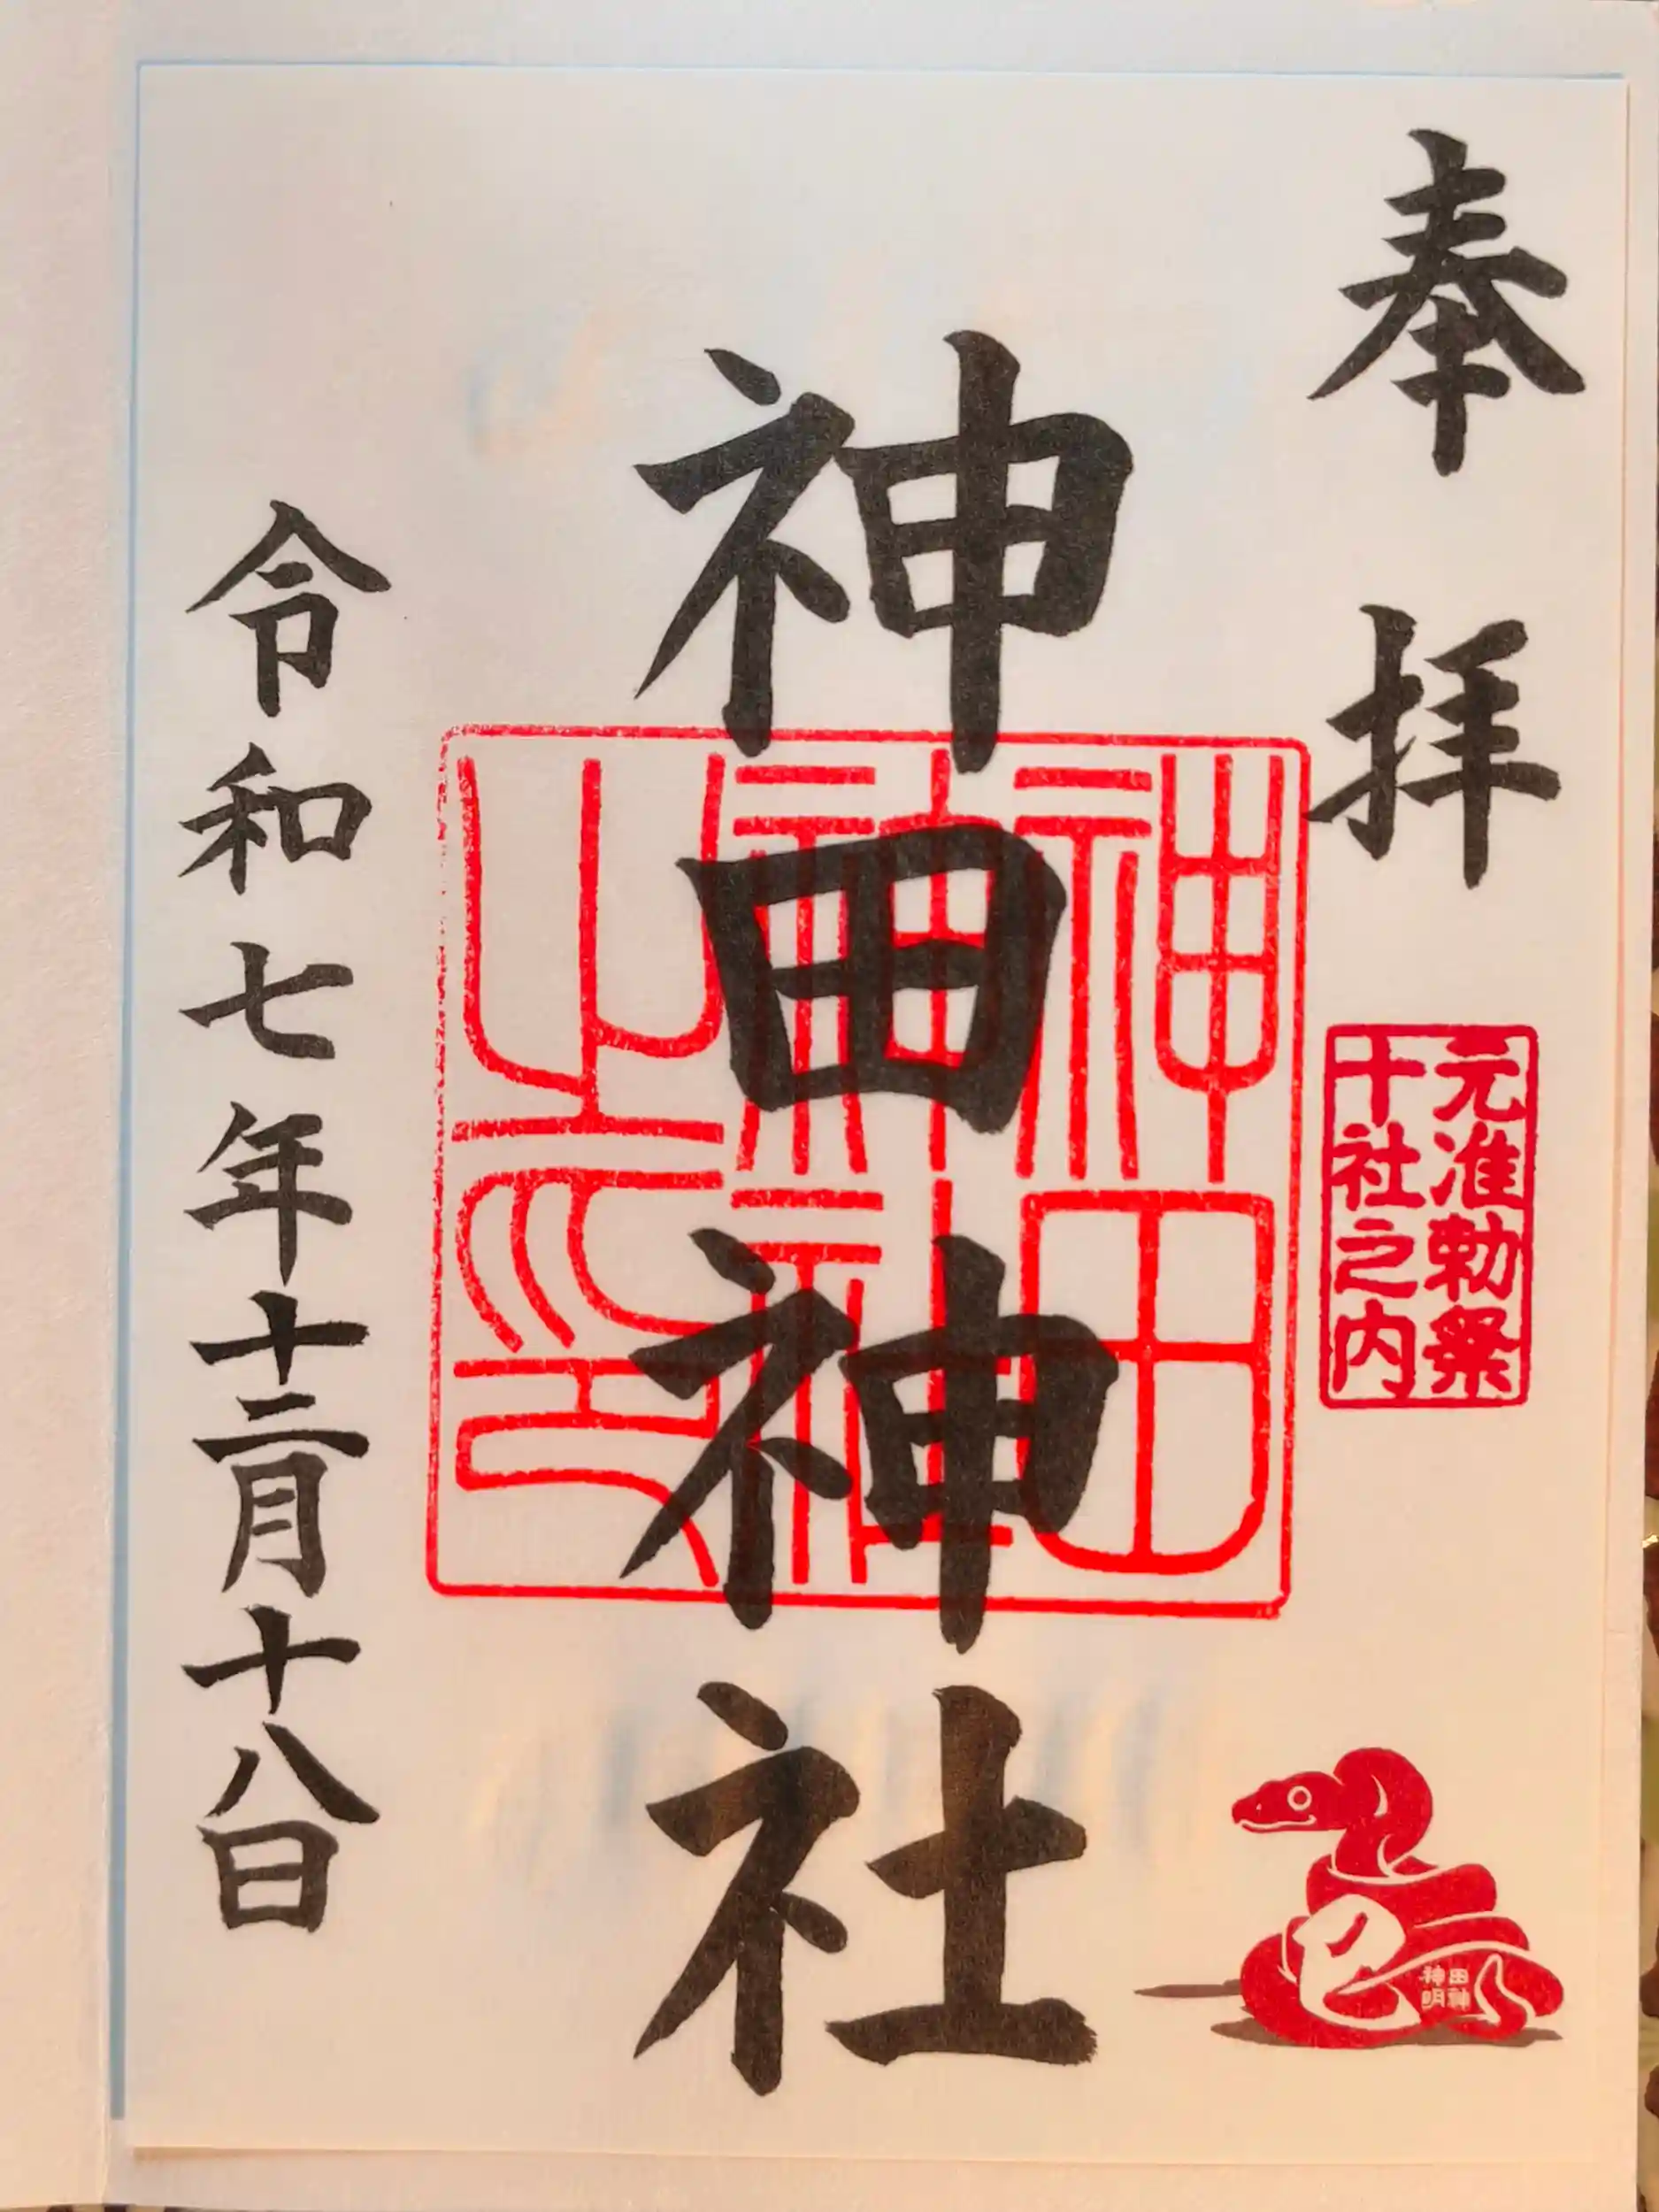 奉拝
元准勅祭
十社之内
巳
田神
神明
神田神社
神田
神社
之印
令和七年十二月十八日